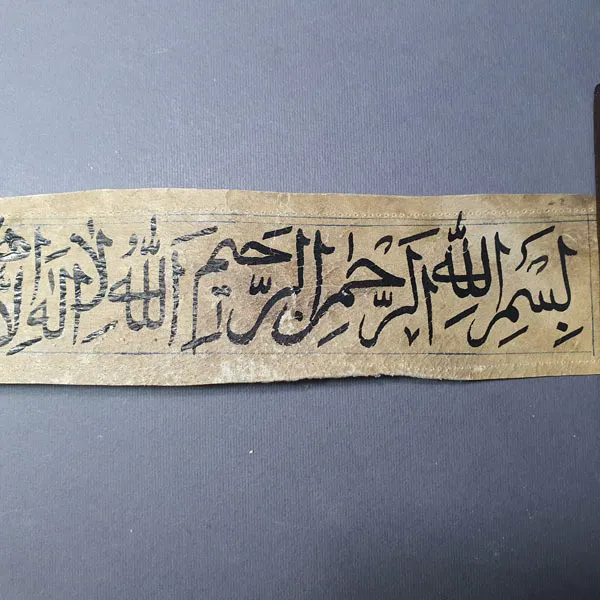 بِسْمِ اللّٰهِ الرَّحْمٰنِ الرَّحِيْمِ اَللّٰهُ لَا اِلٰهَ اِلَّا